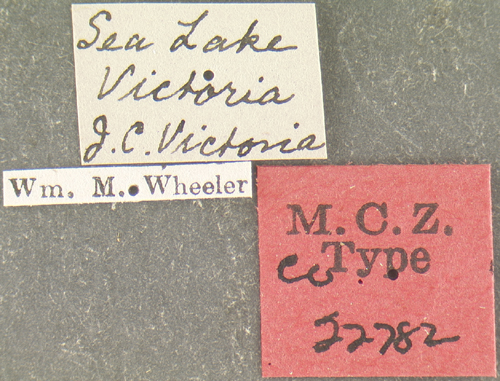 Sea Lake
Victoria
J.C. Victoria
Wm. M. Wheeler
M.C.Z.
Co Type
22782